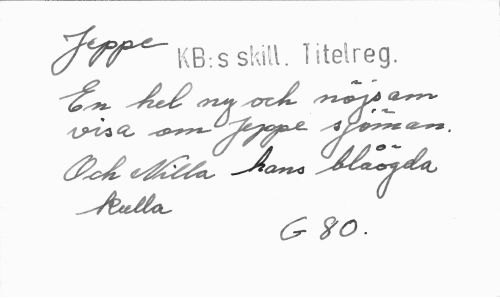 Jeppe
KB:s skill. Titelreg.
En hel ny och nöjsam
visa om Jeppe sjöman.
Och Nilla hans blåögda
kulla
G 80.